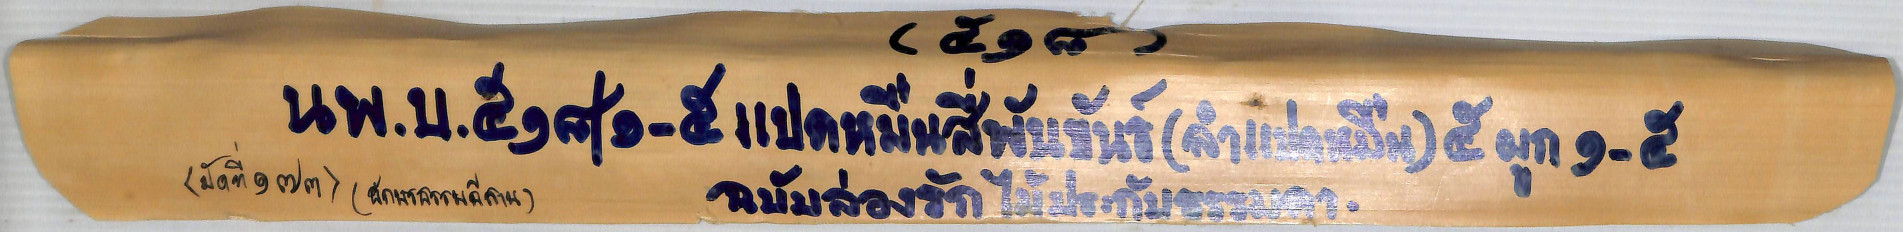 (๕๑๘)
นพ.บ.๕๑๘/๑-๕ แปดหมื่นสี่พันขันธ์ (ลำแปดหมื่น) ๕ ผูก ๑-๕
ฉบับล่องรัก ไม้ประกับธรรมดา.
(มัดที่ ๑๗๓) (อักษรธรรมอีสาน)